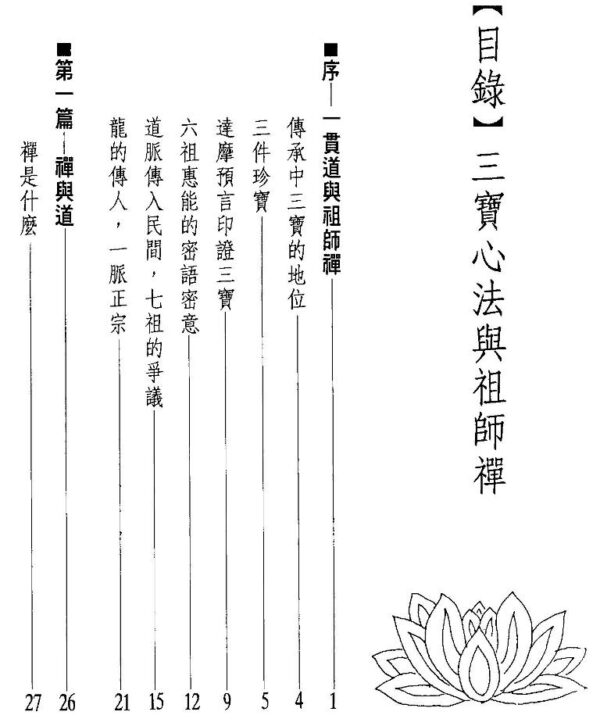 【目錄】三寶心法與祖師禪
■序─一貫道與祖師禪 1
傳承中三寶的地位 4
三件珍寶 5
達摩預言印證三寶 9
六祖惠能的密語密意 12
道脈傳入民間，七祖的爭議 15
龍的傳人，一脈正宗 21
■第一篇─禪與道 26
禪是什麼 27